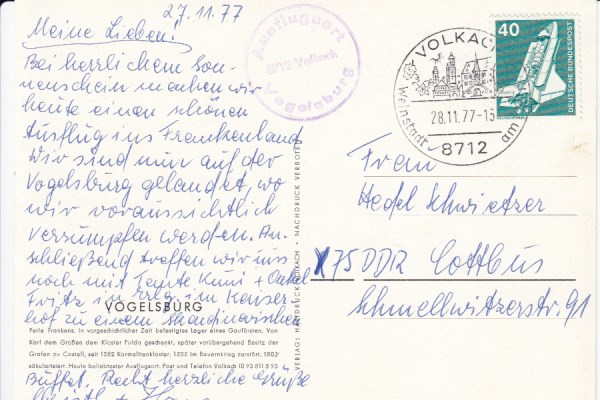 27.11.77
Meine Lieben!
Bei herrlichem Son-
nenschein machen wir
heute einen schönen
Ausflug ins Frankenland
Wir sind nun auf der
Vogelsburg gelandet, wo
wir voraussichtlich
versumpfen werden. An-
schließend treffen wir uns
noch mit Tante Kuni + Onkel
Fritz in Erlg. im Kaiser-
hof zu einem Skandinavischen
VOGELSBURG
Perle Frankens. In vorgeschichtlicher Zeit befestigtes Lager eines Gaufürsten. Von
Karl dem Großen dem Kloster Fulda geschenkt, später vorübergehend Besitz der
Grafen zu Castell, seit 1282 Karmelitenkloster. 1525 im Bauernkrieg zerstört. 1803
säkularisiert. Heute beliebtester Ausflugsort. Post und Telefon Volkach (0 93 81) 5 93
Büffet. Recht herzliche Grüße
Ausflugsort
8712 Volkach
Vogelsburg
VOLKACH
28.11.77-15
Weinstadt am
8712
40
DEUTSCHE BUNDESPOST
NACHDRUCK VERBOTEN
VERLAG:
Frau
Hedel Schwietzer
X75 DDR Cottbus
Schmellwitzerstr. 91